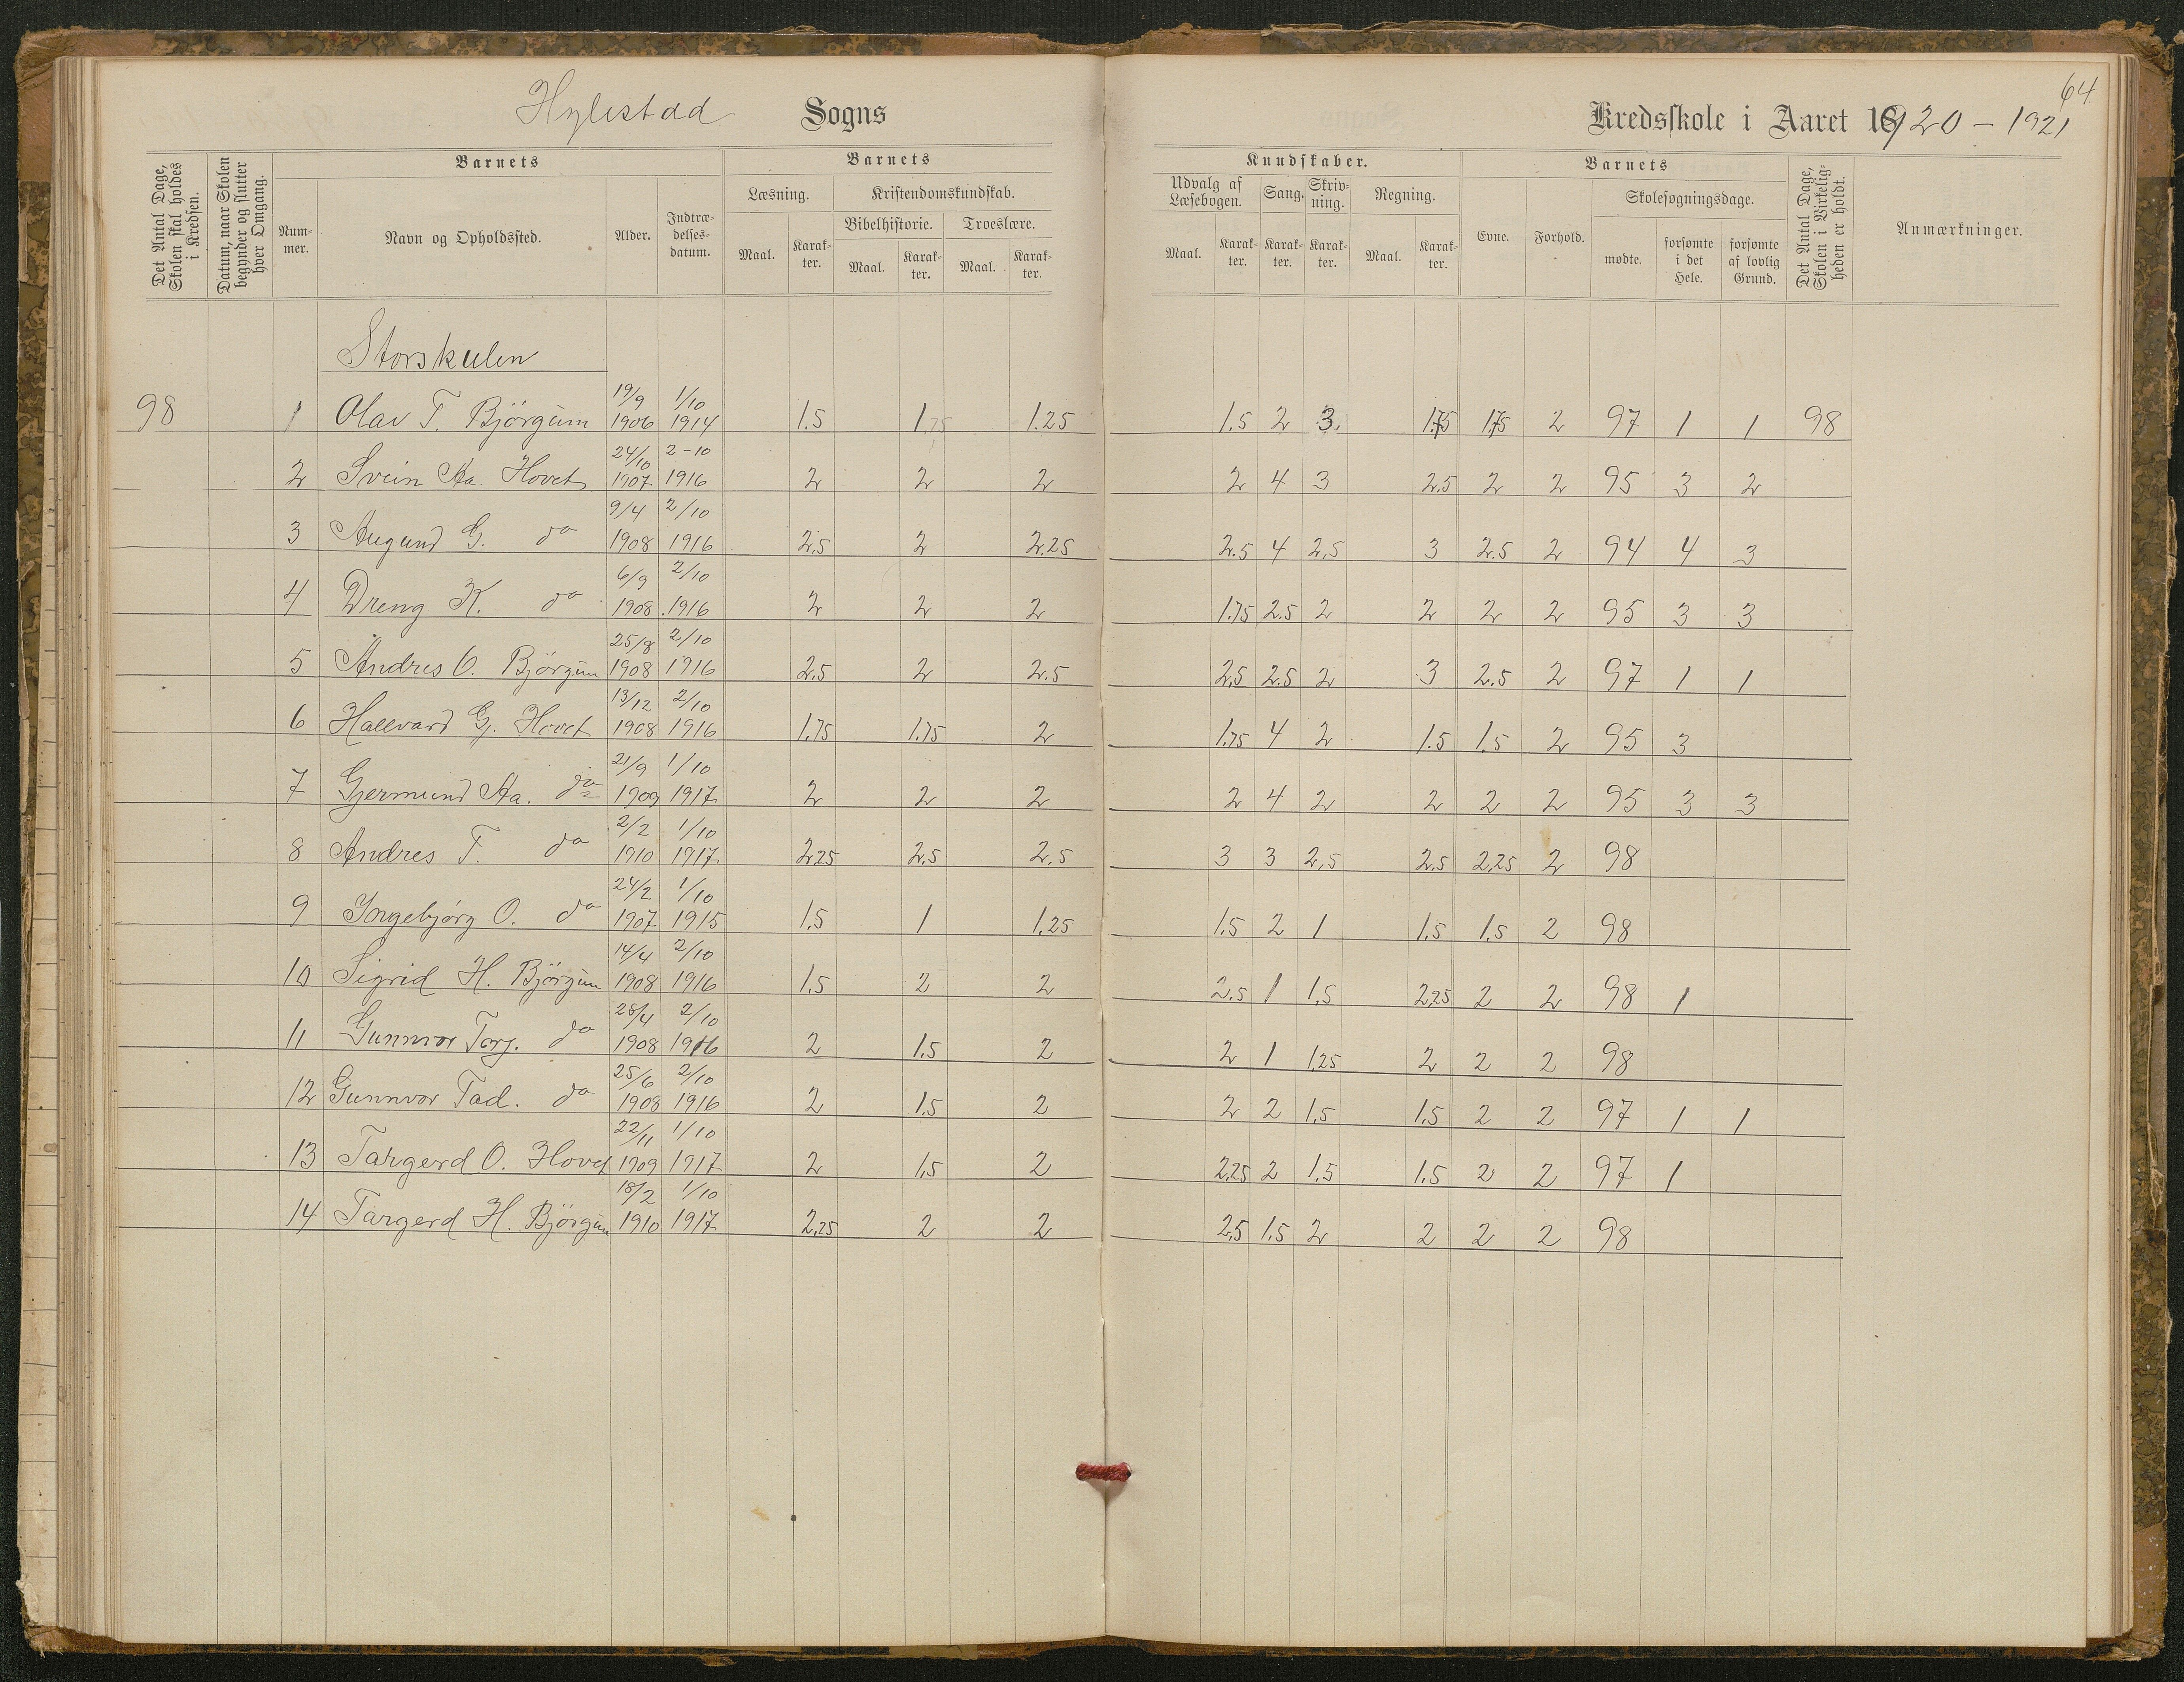 64
Hylestad Sogns Kredsskole i Aaret 1920 – 1921
Det Antal Dage, Skolen skal holdes i Kredsen.
Datum, naar Skolen begynder og slutter hver Omgang.
Barnets
Nummer.
Navn og Opholdssted.
Alder.
Indtrædelsesdatum.
Barnets
Læsning.
Maal. Karakter.
Kristendomskundskab.
Bibelhistorie. Troeslære.
Maal. Karakter. Maal. Karakter.
Kundskaber.
Udvalg af Læsebogen. Sang. Skrivning. Regning.
Maal. Karakter. Karakter. Karakter. Maal. Karakter.
Barnets
Evne. Forhold.
Skolesøgningsdage.
mødte. forsømte i det Hele. forsømte af lovlig Grund.
Det Antal Dage, Skolen i Virkeligheden er holdt.
Anmærkninger.
Storskulen
98 1 Olav T. Bjørgum 19/9 1906 1/10 1914 1.5 1.75 1.25 1.5 2 3. 1.75 1.75 2 97 1 1 98
2 Svein Aa. Hovet 24/10 1907 2-10 1916 2 2 2 2 4 3 2.5 2 2 95 3 2
3 Augund G. do 9/4 1908 2/10 1916 2.5 2 2.25 2.5 4 2,5 3 2.5 2 94 4 3
4 Dreng K. do 6/9 1908 2/10 1916 2 2 2 1.75 2.5 2 2 2 2 95 3 3
5 Andres O. Bjørgum 25/8 1908 2/10 1916 2.5 2 2.5 2,5 2.5 2 3 2.5 2 97 1 1
6 Hallvard G. Hovet 13/12 1908 2/10 1916 1.75 1.75 2 1.75 4 2 1.5 1.5 2 95 3
7 Gjermund Aa. do 21/9 1909 1/10 1917 2 2 2 2 4 2 2 2 2 95 3 3
8 Andres T. do 2/2 1910 1/10 1917 2,25 2.5 2.5 3 3 2,5 2.5 2,25 2 98
9 Ingebjørg O. do 24/2 1907 1/10 1915 1.5 1 1,25 1.5 2 1 1,5 1,5 2 98
10 Sigrid H. Bjørgum 14/4 1908 2/10 1916 1.5 2 2 2.5 1 1,5 2,25 2 2 98 1
11 Gunnvor Torj. do 28/4 1908 2/10 1916 2 1.5 2 2 1 1,25 2 2 2 98
12 Gunnvor Tad. do 25/6 1908 2/10 1916 2 1.5 2 2 2 1,5 1.5 2 2 97 1 1
13 Targerd O. Hovet 22/11 1909 1/10 1917 2 1,5 2 2,25 2 1.5 1.5 2 2 97 1
14 Targerd H. Bjørgum 18/2 1910 1/10 1917 2,25 2 2 2,5 1.5 2 2 2 2 98